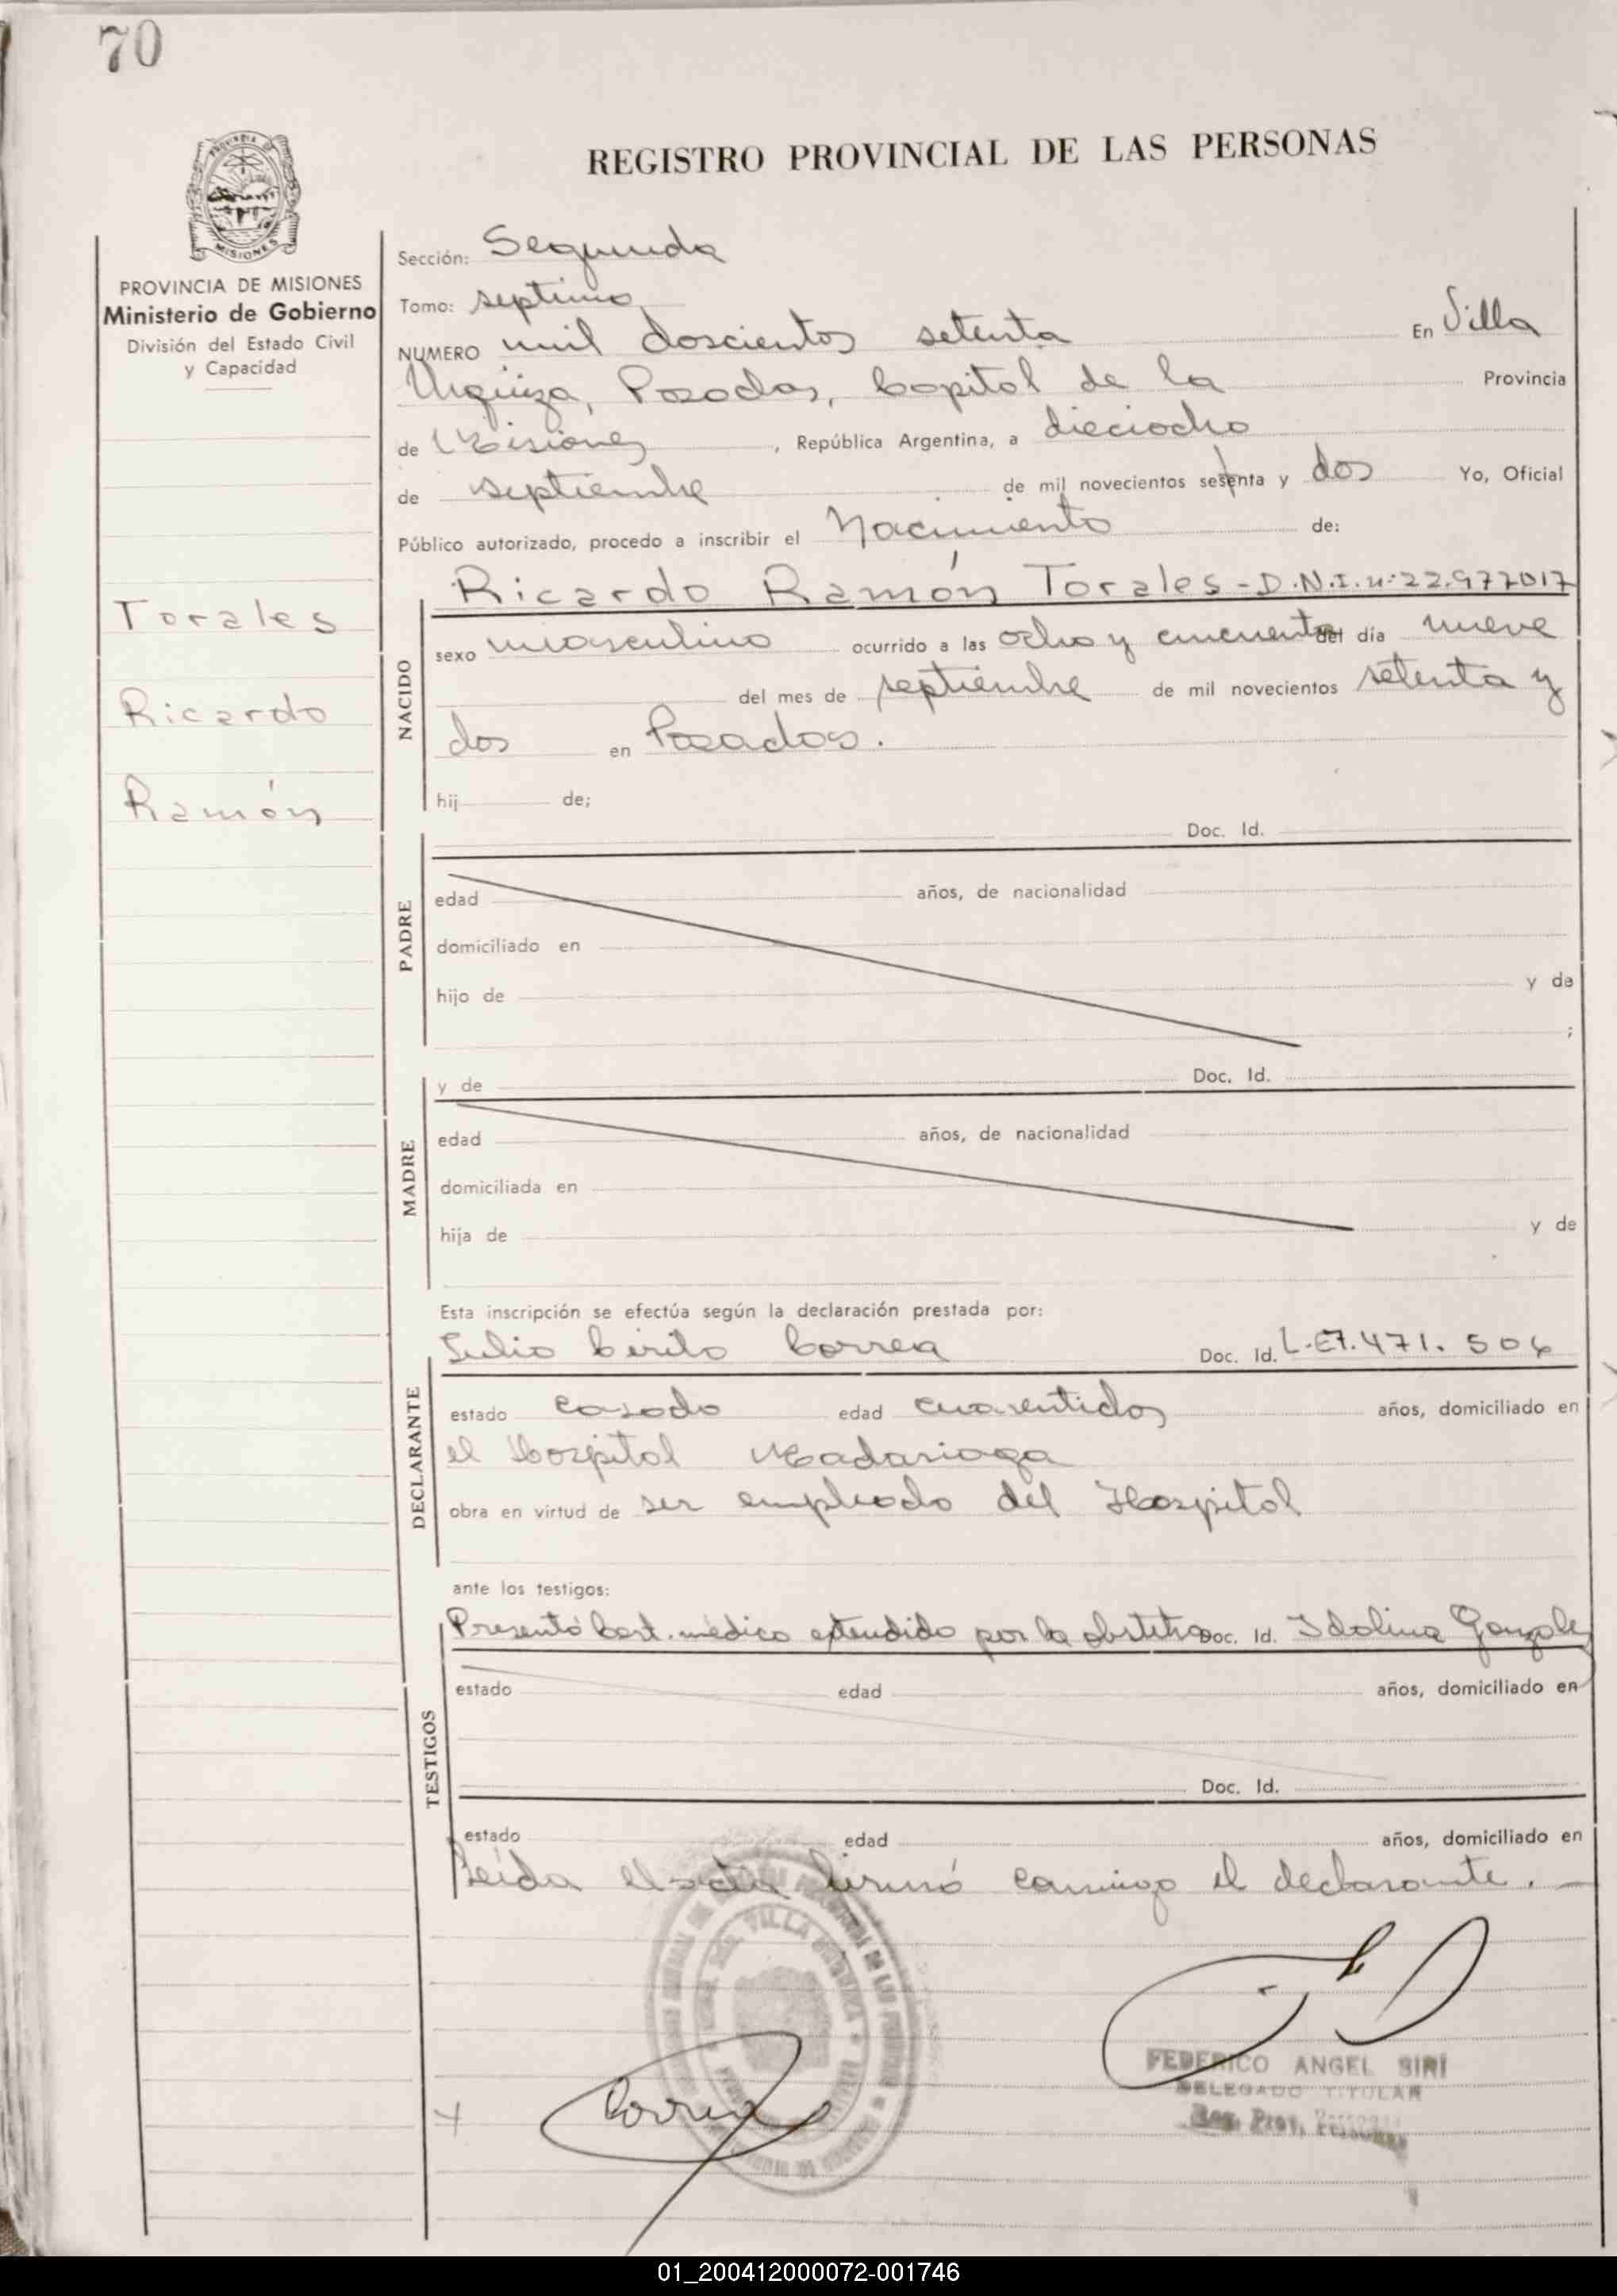 70
REGISTRO PROVINCIAL DE LAS PERSONAS
MISIONES
PROVINCIA DE MISIONES
Ministerio de Gobierno
División del Estado Civil
y Capacidad
Torales
Ricardo
Ramón
Sección: Segunda
Tomo: septimo
NUMERO mil doscientos setenta En Villa
Urquiza, Posadas, Capital de la Provincia
de Misiones, República Argentina, a dieciocho
de septiembre de mil novecientos setenta y dos Yo, Oficial
Público autorizado, procedo a inscribir el Nacimiento de:
NACIDO
Ricardo Ramón Torales - D.N.I. n: 22.977017
sexo masculino ocurrido a las ocho y cincuenta del día nueve
del mes de septiembre de mil novecientos setenta y
dos en Posadas.
hij de;
Doc. Id.
PADRE
edad años, de nacionalidad
domiciliado en
hijo de y de
;
MADRE
y de Doc. Id.
edad años, de nacionalidad
domiciliada en
hija de y de
Esta inscripción se efectúa según la declaración prestada por:
DECLARANTE
Julio Cirilo Correa Doc. Id. L.E 7.471.506
estado casado edad cuarentidos años, domiciliado en
el Hospital Madariaga
obra en virtud de ser empleado del Hospital
ante los testigos:
TESTIGOS
Presentó Cert. médico extendido por la obstetra Doc. Id. Idolina Gonzalez
estado edad años, domiciliado en
Doc. Id.
estado edad años, domiciliado en
Leída el acta firmó conmigo el declarante. —
VILLA URQUIZA
Correa
FEDERICO ANGEL SIRI
DELEGADO TITULAR
Reg. Prov. Personas
01_200412000072-001746